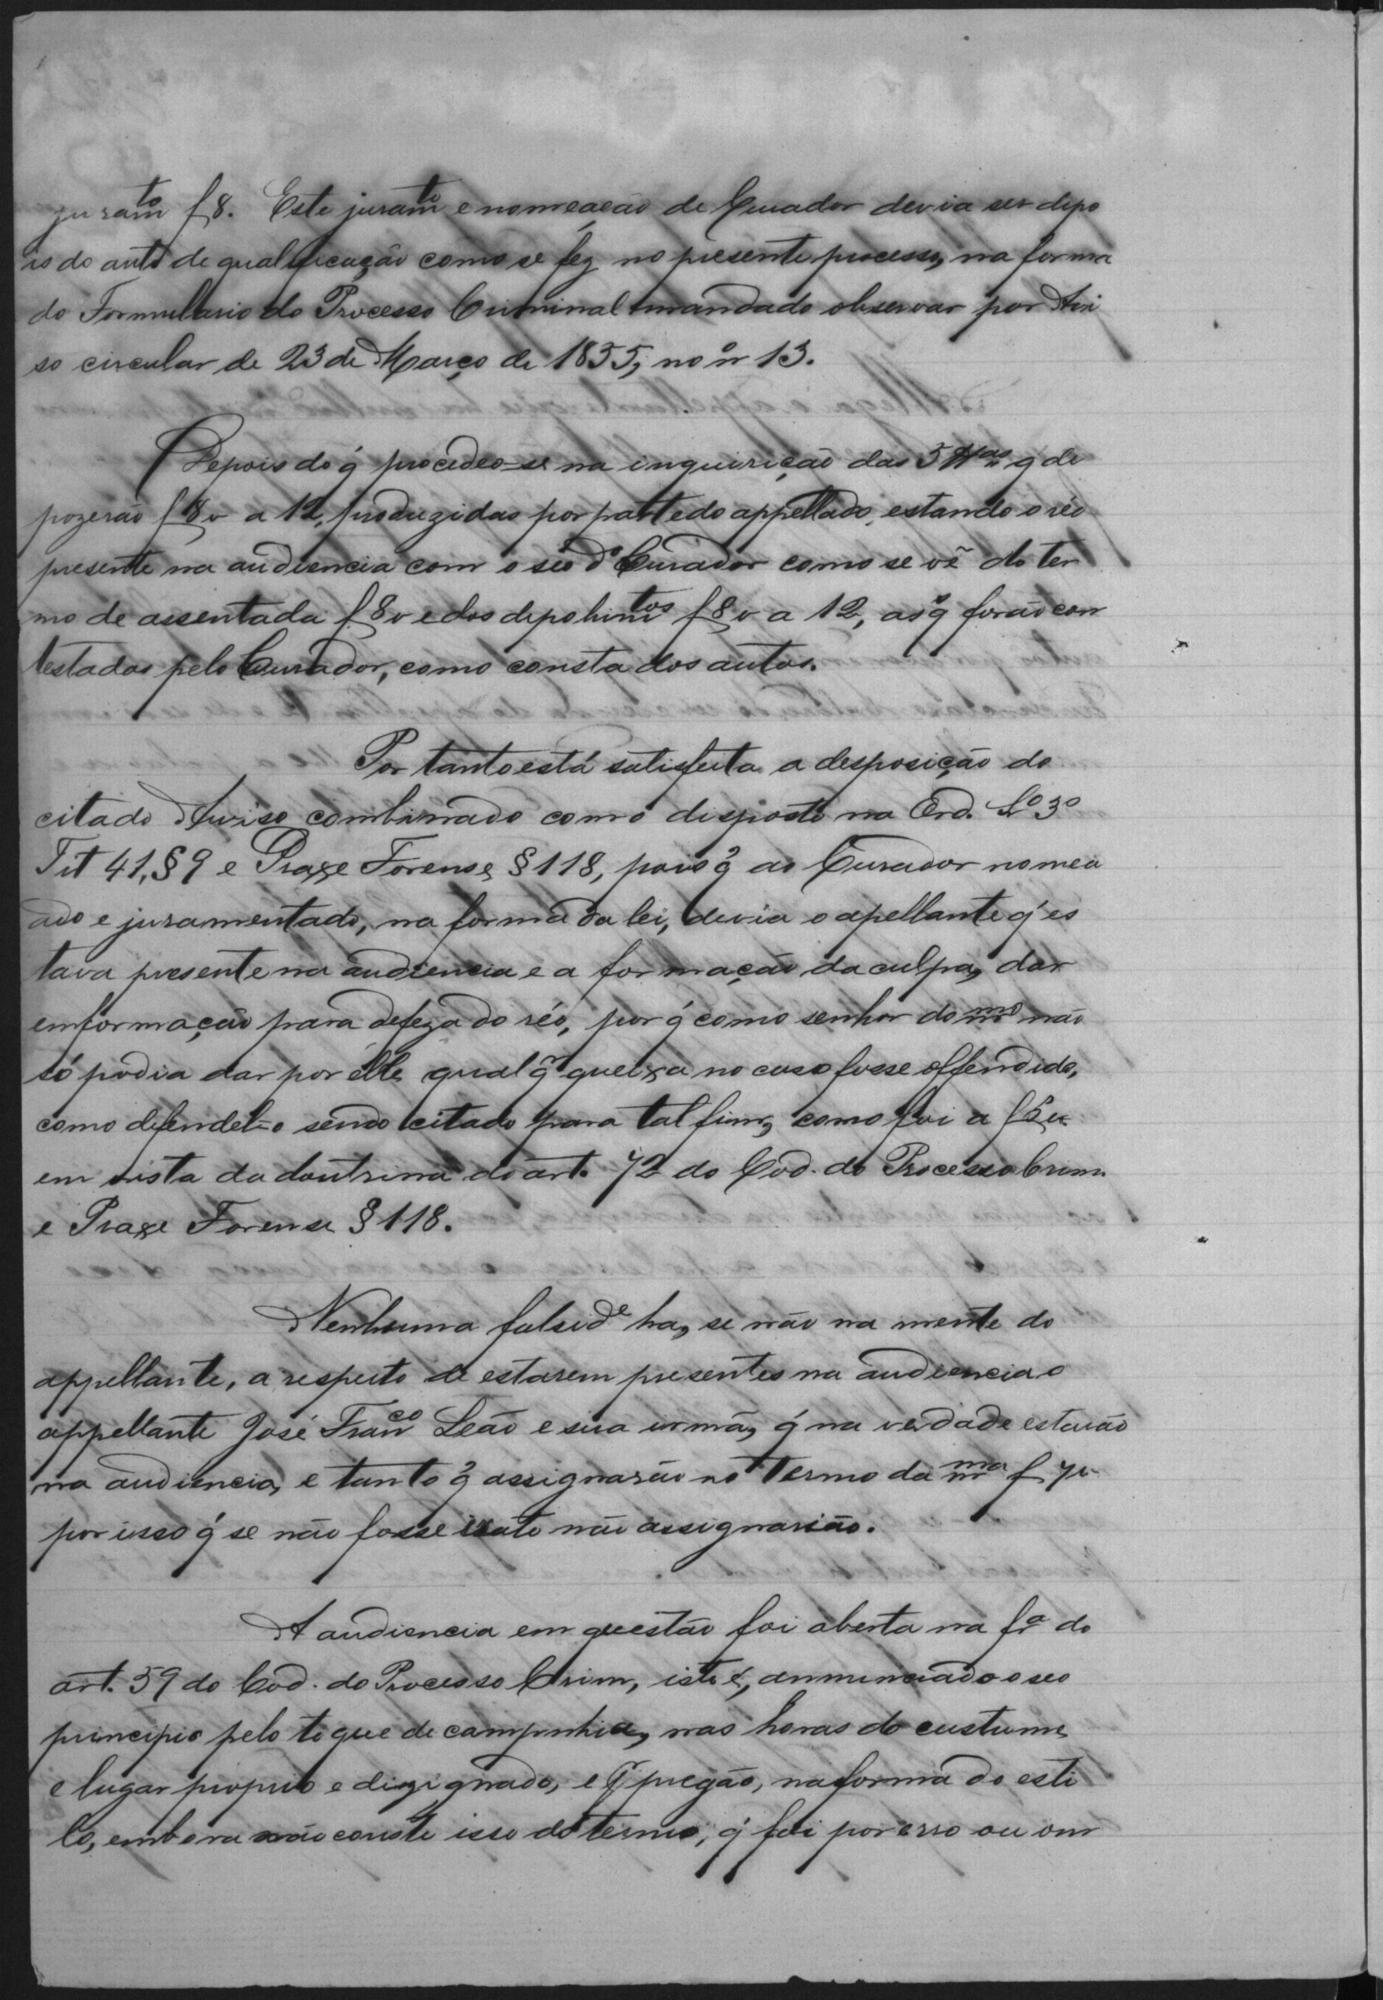 juramto f 8. Este juramto e nomeação de Curador devia ser depo
is do auto de qualificação como se fez no presente processo, na forma
do Formulario do Processo Criminal mandado observar por Avi
so circular de 23 de Março de 1855, no nº 13.
Depois do q̃ procedeo-se na inquirição das 5 ttas q̃ de
pozerão f 8 v a 12, produzidas por parte do appellado, estando o réo
presente na audiencia com o seo do Curador como se vê do ter
mo de assentada f 8 v e dos depohimtos f 8 v a 12, as q̃ forão con
testadas pelo Curador, como consta dos autos.
Por tanto está satisfeita a desposição do
citado Aviso combinado com o disposto na Ord. Lº 3º
Tit 41, § 9 e Praxe Forense § 118, pois q̃ ao Curador nomea
ado e juramentado, na forma da lei, devia o apellante q̃ es
tava presente na audiencia e a formação da culpa, dar
emformação para defeza do réo, por q̃ como senhor do mmo não
só podia dar por elle qual q̃ queixa no caso fosse offendido,
como defendel-o sendo citado para tal fim, como foi a f 5 v
em vista da doutrina do art. 72 do Cod. do Processo Crim.
e Praxe Forense § 118.
Nenhuma falside ha, se não na mente do
appellante, a respeito de estarem presentes na audiencia o
appellante José Franco Leão e sua irmã, q̃ na verdade estavão
na audiencia, e tanto q̃ assignarão no termo da mma f 7 v
por isso q̃ se não fosse exato não assignarião.
A audiencia em questão foi aberta na fra do
art. 59 do Cod. do Processo Crim, isto é, annunciado o seo
principio pelo toque de campinhia, nas horas do custume
e lugar proprio e dizignado, e pr pregão, na forma do esti
lo, embora não conste isso do termo, q̃ foi por erro ou om